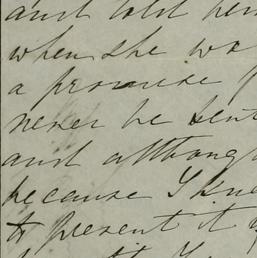 and told her
when she wa
a promise
never be sent
and although
because I kne
to present it